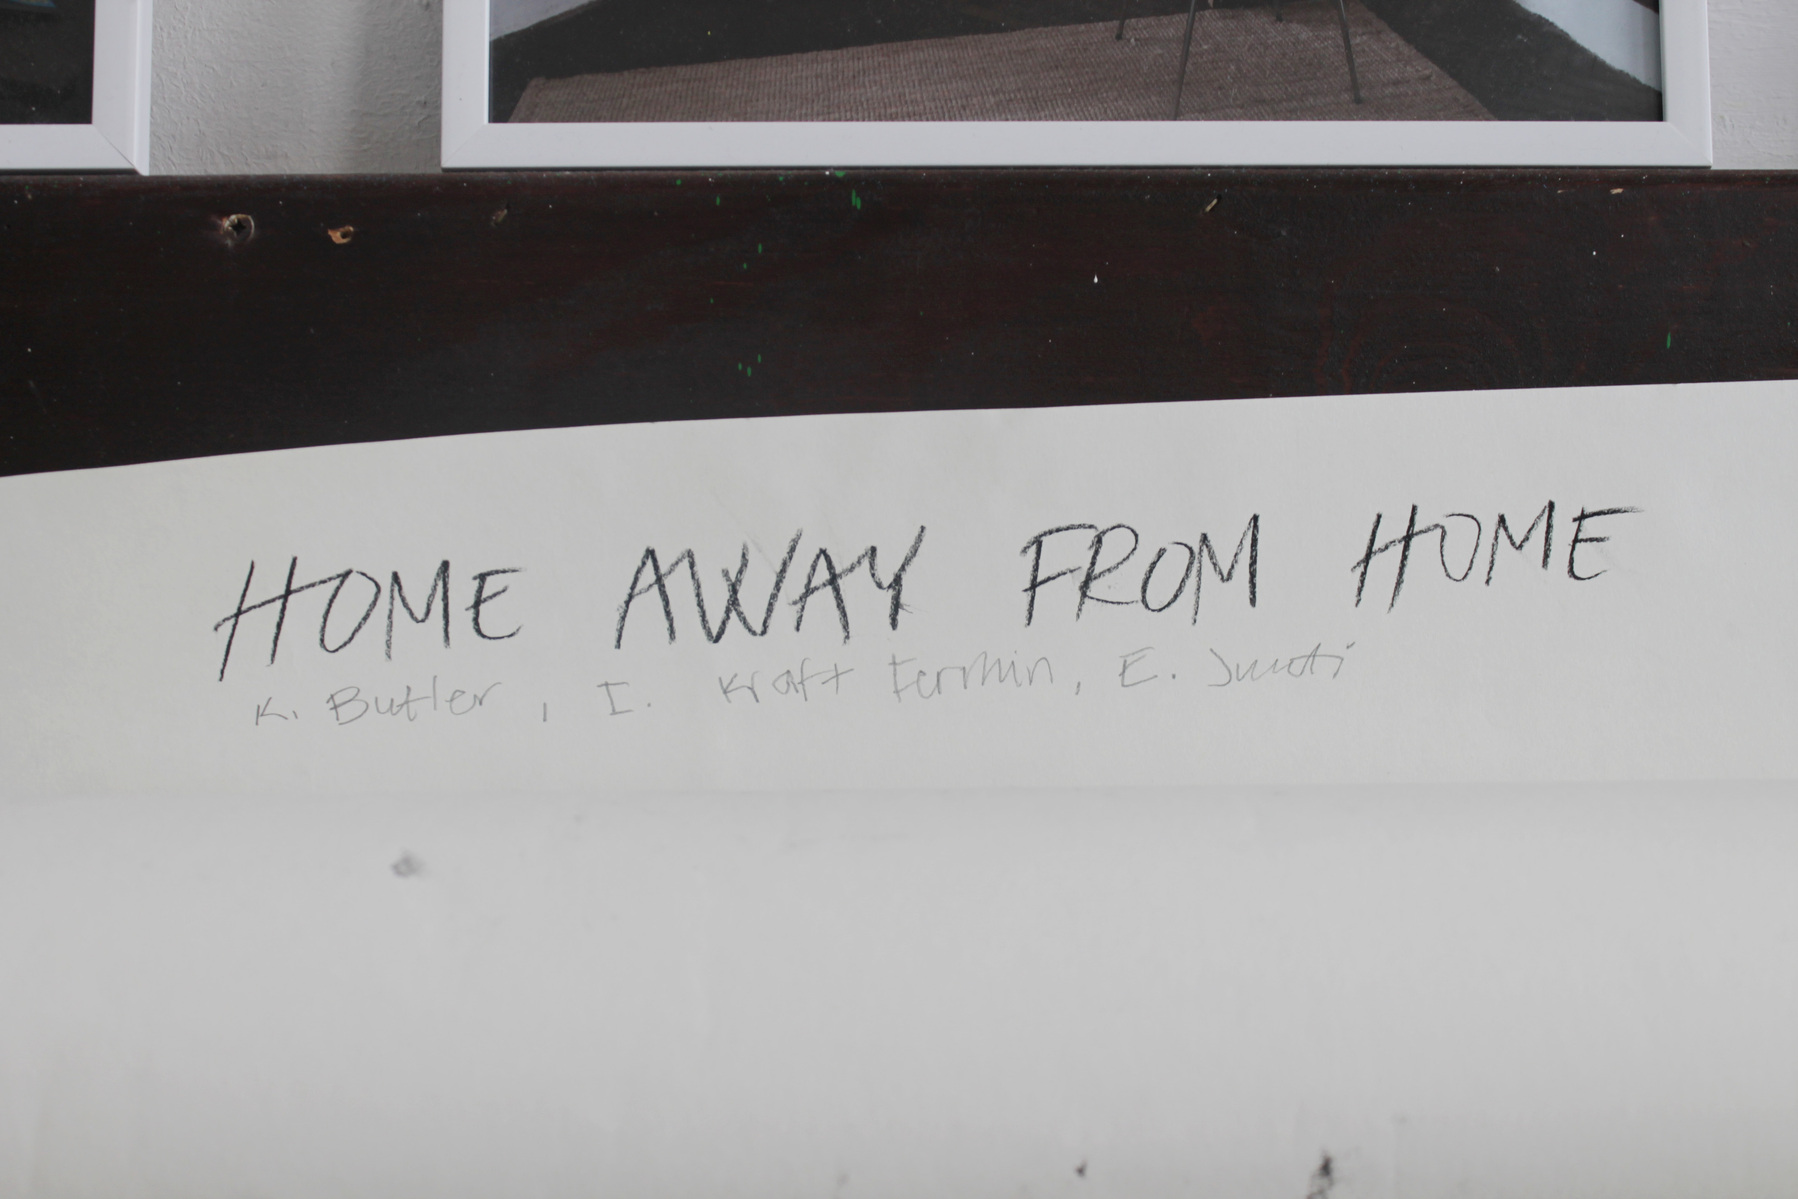 HOME AWAY FROM HOME
K. Butler, I. Kraft Fermin, E.